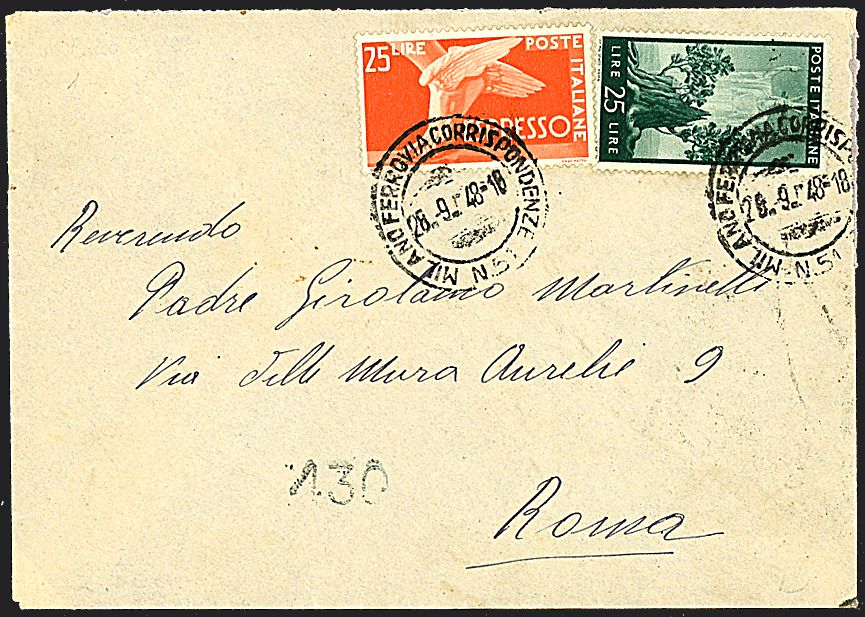 25 LIRE POSTE ITALIANE
ESPRESSO
POSTE ITALIANE
LIRE 25 LIRE
MILANO FERROVIA CORRISPONDENZE N.51
28.-9.-48-18
MILANO FERROVIA CORRISPOND N.51
28.-9.-48-18
Reverendo
Padre Girolamo Martinelli
Via delle Mura Aurelie 9
130
Roma